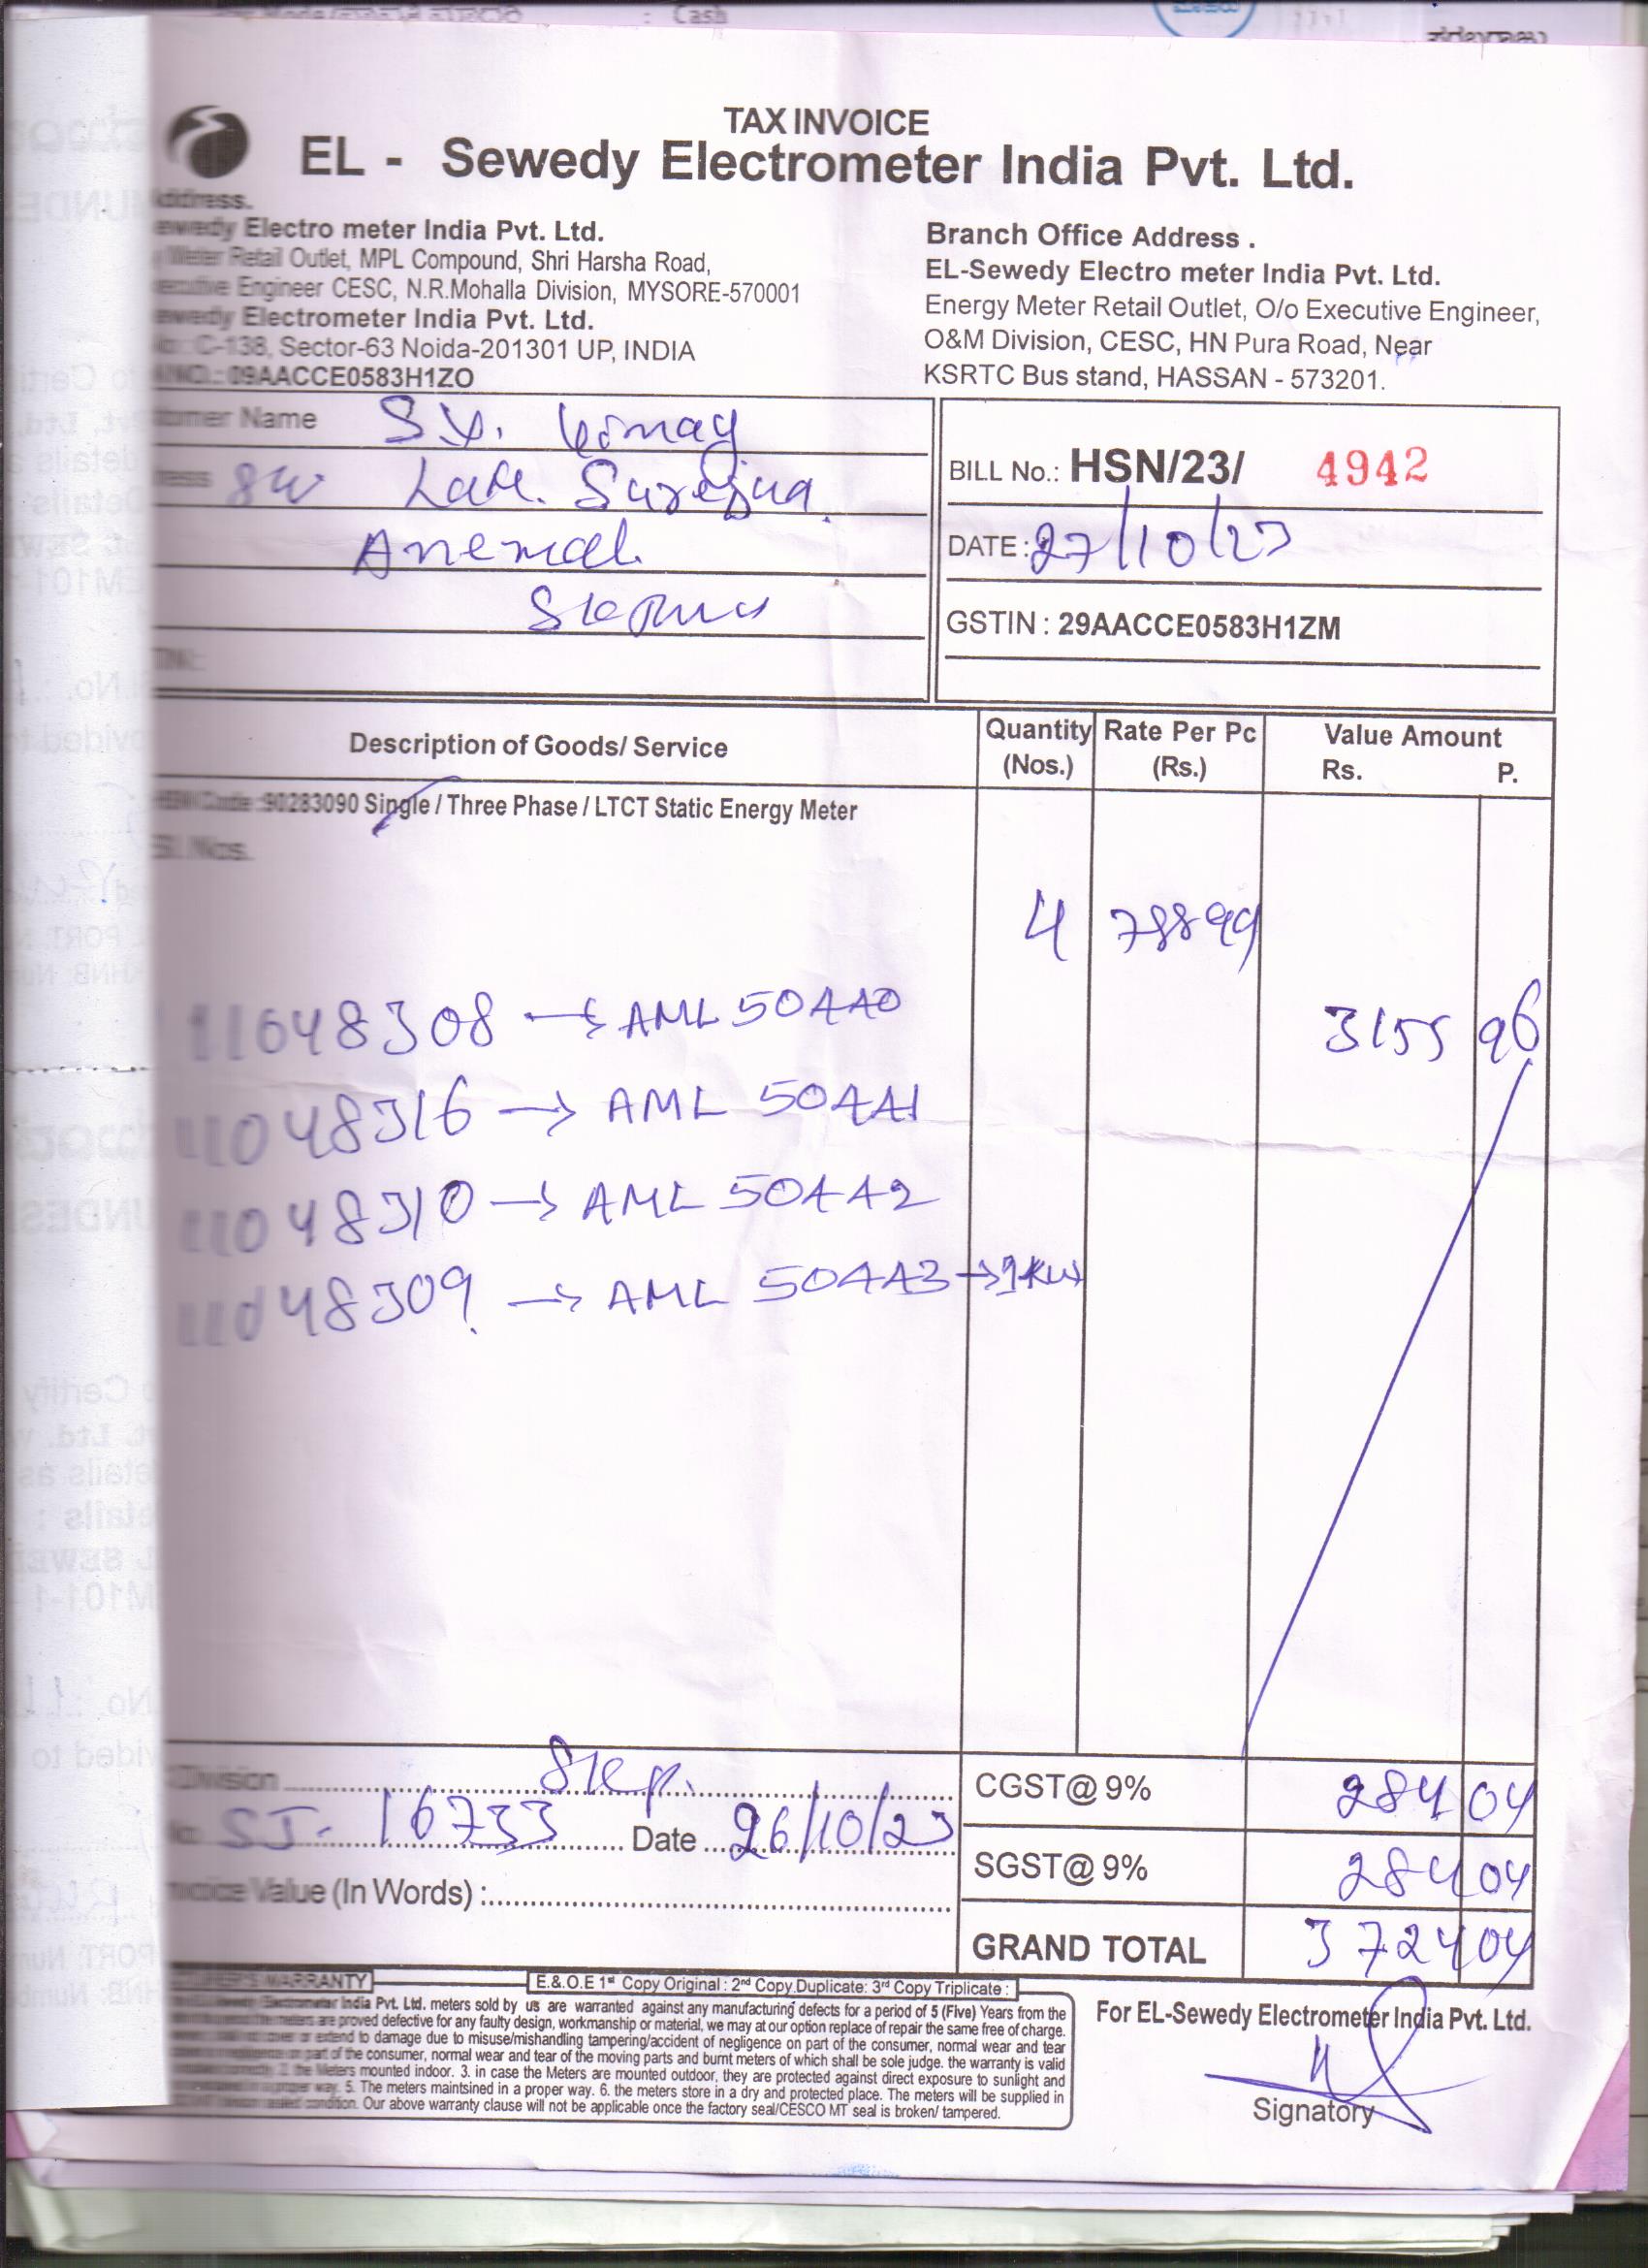 : Cash
TAX INVOICE
EL - Sewedy Electrometer India Pvt. Ltd.
Address.
Sewedy Electro meter India Pvt. Ltd.
Meter Retail Outlet, MPL Compound, Shri Harsha Road,
Engineer CESC, N.R.Mohalla Division, MYSORE-570001
Sewedy Electrometer India Pvt. Ltd.
C-138, Sector-63 Noida-201301 UP, INDIA
09AACCE0583H1ZO
Branch Office Address .
EL-Sewedy Electro meter India Pvt. Ltd.
Energy Meter Retail Outlet, O/o Executive Engineer,
O&M Division, CESC, HN Pura Road, Near
KSRTC Bus stand, HASSAN - 573201.
Name
Late.
BILL No.: HSN/23/ 4942
DATE: 27/10/23
GSTIN : 29AACCE0583H1ZM
Description of Goods/ Service
Quantity (Nos.)
Rate Per Pc (Rs.)
Value Amount
Rs. P.
90283090 Single / Three Phase / LTCT Static Energy Meter
Nos.
4 78899
11048308 → AML 504440
3155 96
11048316 → AML 504441
11048310 → AML 504442
11048309 → AML 504443 → 1KW
Division
SJ- 16733 Date 26/10/23
Value (In Words) :
CGST@ 9% 284 04
SGST@ 9% 284 04
GRAND TOTAL 3724 04
WARRANTY
E.& O.E 1st Copy Original : 2nd Copy Duplicate: 3rd Copy Triplicate :
India Pvt. Ltd. meters sold by us are warranted against any manufacturing defects for a period of 5 (Five) Years from the
are proved defective for any faulty design, workmanship or material, we may at our option replace of repair the same free of charge.
extend to damage due to misuse/mishandling tampering/accident of negligence on part of the consumer, normal wear and tear
part of the consumer, normal wear and tear of the moving parts and burnt meters of which shall be sole judge. the warranty is valid
the Meters mounted indoor. 3. in case the Meters are mounted outdoor, they are protected against direct exposure to sunlight and
way. 5. The meters maintsined in a proper way. 6. the meters store in a dry and protected place. The meters will be supplied in
condition. Our above warranty clause will not be applicable once the factory seal/CESCO MT seal is broken/ tampered.
For EL-Sewedy Electrometer India Pvt. Ltd.
Signatory